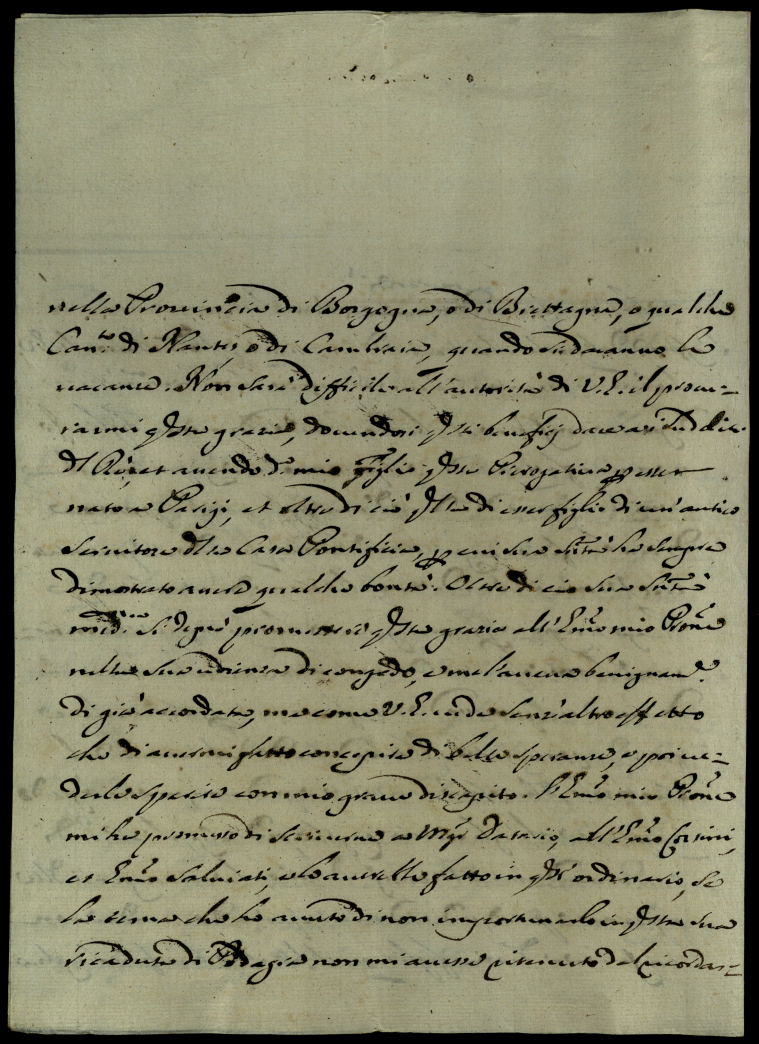 nella Provincia di Borgogna, o di Brettagna, o qualche
Can.to di Nantes, o di Cambraia, quando si daranno le
vacanze. Non sarà difficile all'autorità di V.E. il procu=
rarmi qsta grazia, dovendosi qsti benefizj dare
dl Rè, et avendo d.o mio figlio qsta Prerogativa p esser
nato a Parigi, et oltre di ciò qlla di esser figlio di un'antico
servitore dlla Casa Pontificia, p cui sua Sant.à ha sempre
dimostrato avere qualche bontà. Oltre di ciò sua Sant.à
med.ma si degnò promettere qsta grazia all'Emo mio Prone
nella sua udienza di congedo, e me l'aveva benignam.e
di già accordata, ma come V.E. vede senz'altro effetto
che di avermi fatto concepire di belle speranze, e poi ve=
derle sparire con mio grave discapito. l'Emo mio Prone
mi ha promesso di scrivere a Msr Datario, all'Emo Corsini,
et Emo Salviati, e lo averebbe fatto in qst'ordinario, se
la tema che ho avuto di non importunarlo in qsta sua
ricaduta di Podagra non mi avesse ritenuto dal ricordar=